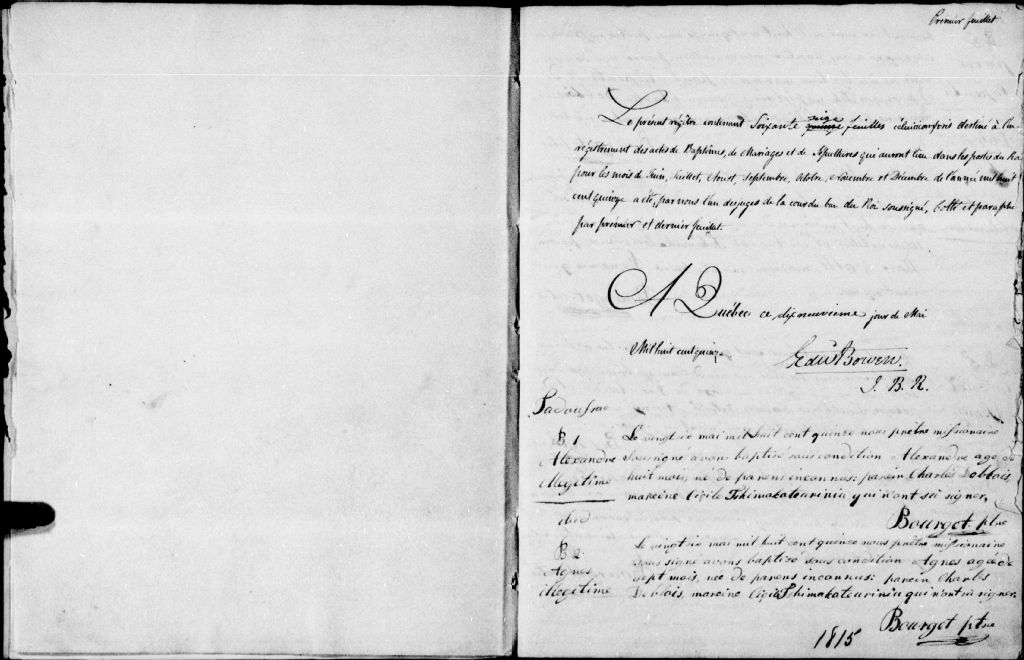 Premier feuillet
Le présent régitre contenant Soixante nize feuilles célui mon fois destiné à l'en
régistrement des actes de Baptêmes, de Mariages et de Sépultures qui auront lieu dans les postes du Roi
pour les mois de Juin, Juillet, Aoust, Septembre, Octobre, Novembre et Décembre de l'année mil huit
cent quinze a été, par nous l'un des juges de la cour du banc du Roi soussigné, Cotté et paraphé
par prémier et dernier feuillet.
A Québec ce dix neuvieme jour de Mai
Mil huit cent quinze
Edwd Bowen.
J. B. R.
Tadoussac
B 1
Alexandre
Illegitime
Le vingt six mai mil huit cent quinze nous prêtre missionaire
Soussigné avons baptisé sous condition Alexandre age de
huit mois, né de parens inconnus: parein Charles Deblois,
mareine Cecile Tchimakatouriniu qui n'ont sçi signer,
Bourget ptre
died
B 2
Agnes
Illegitime
Le vingt six mai mil huit cent quinze nous prêtre missionaire
Sous signé avons baptisé sous condition Agnes agée de
sept mois, née de parens inconnus: parein Charles
Deblois, mareine Cecile Tchimakatouriniu qui n'ont sçi signer.
Bourget ptre
1815